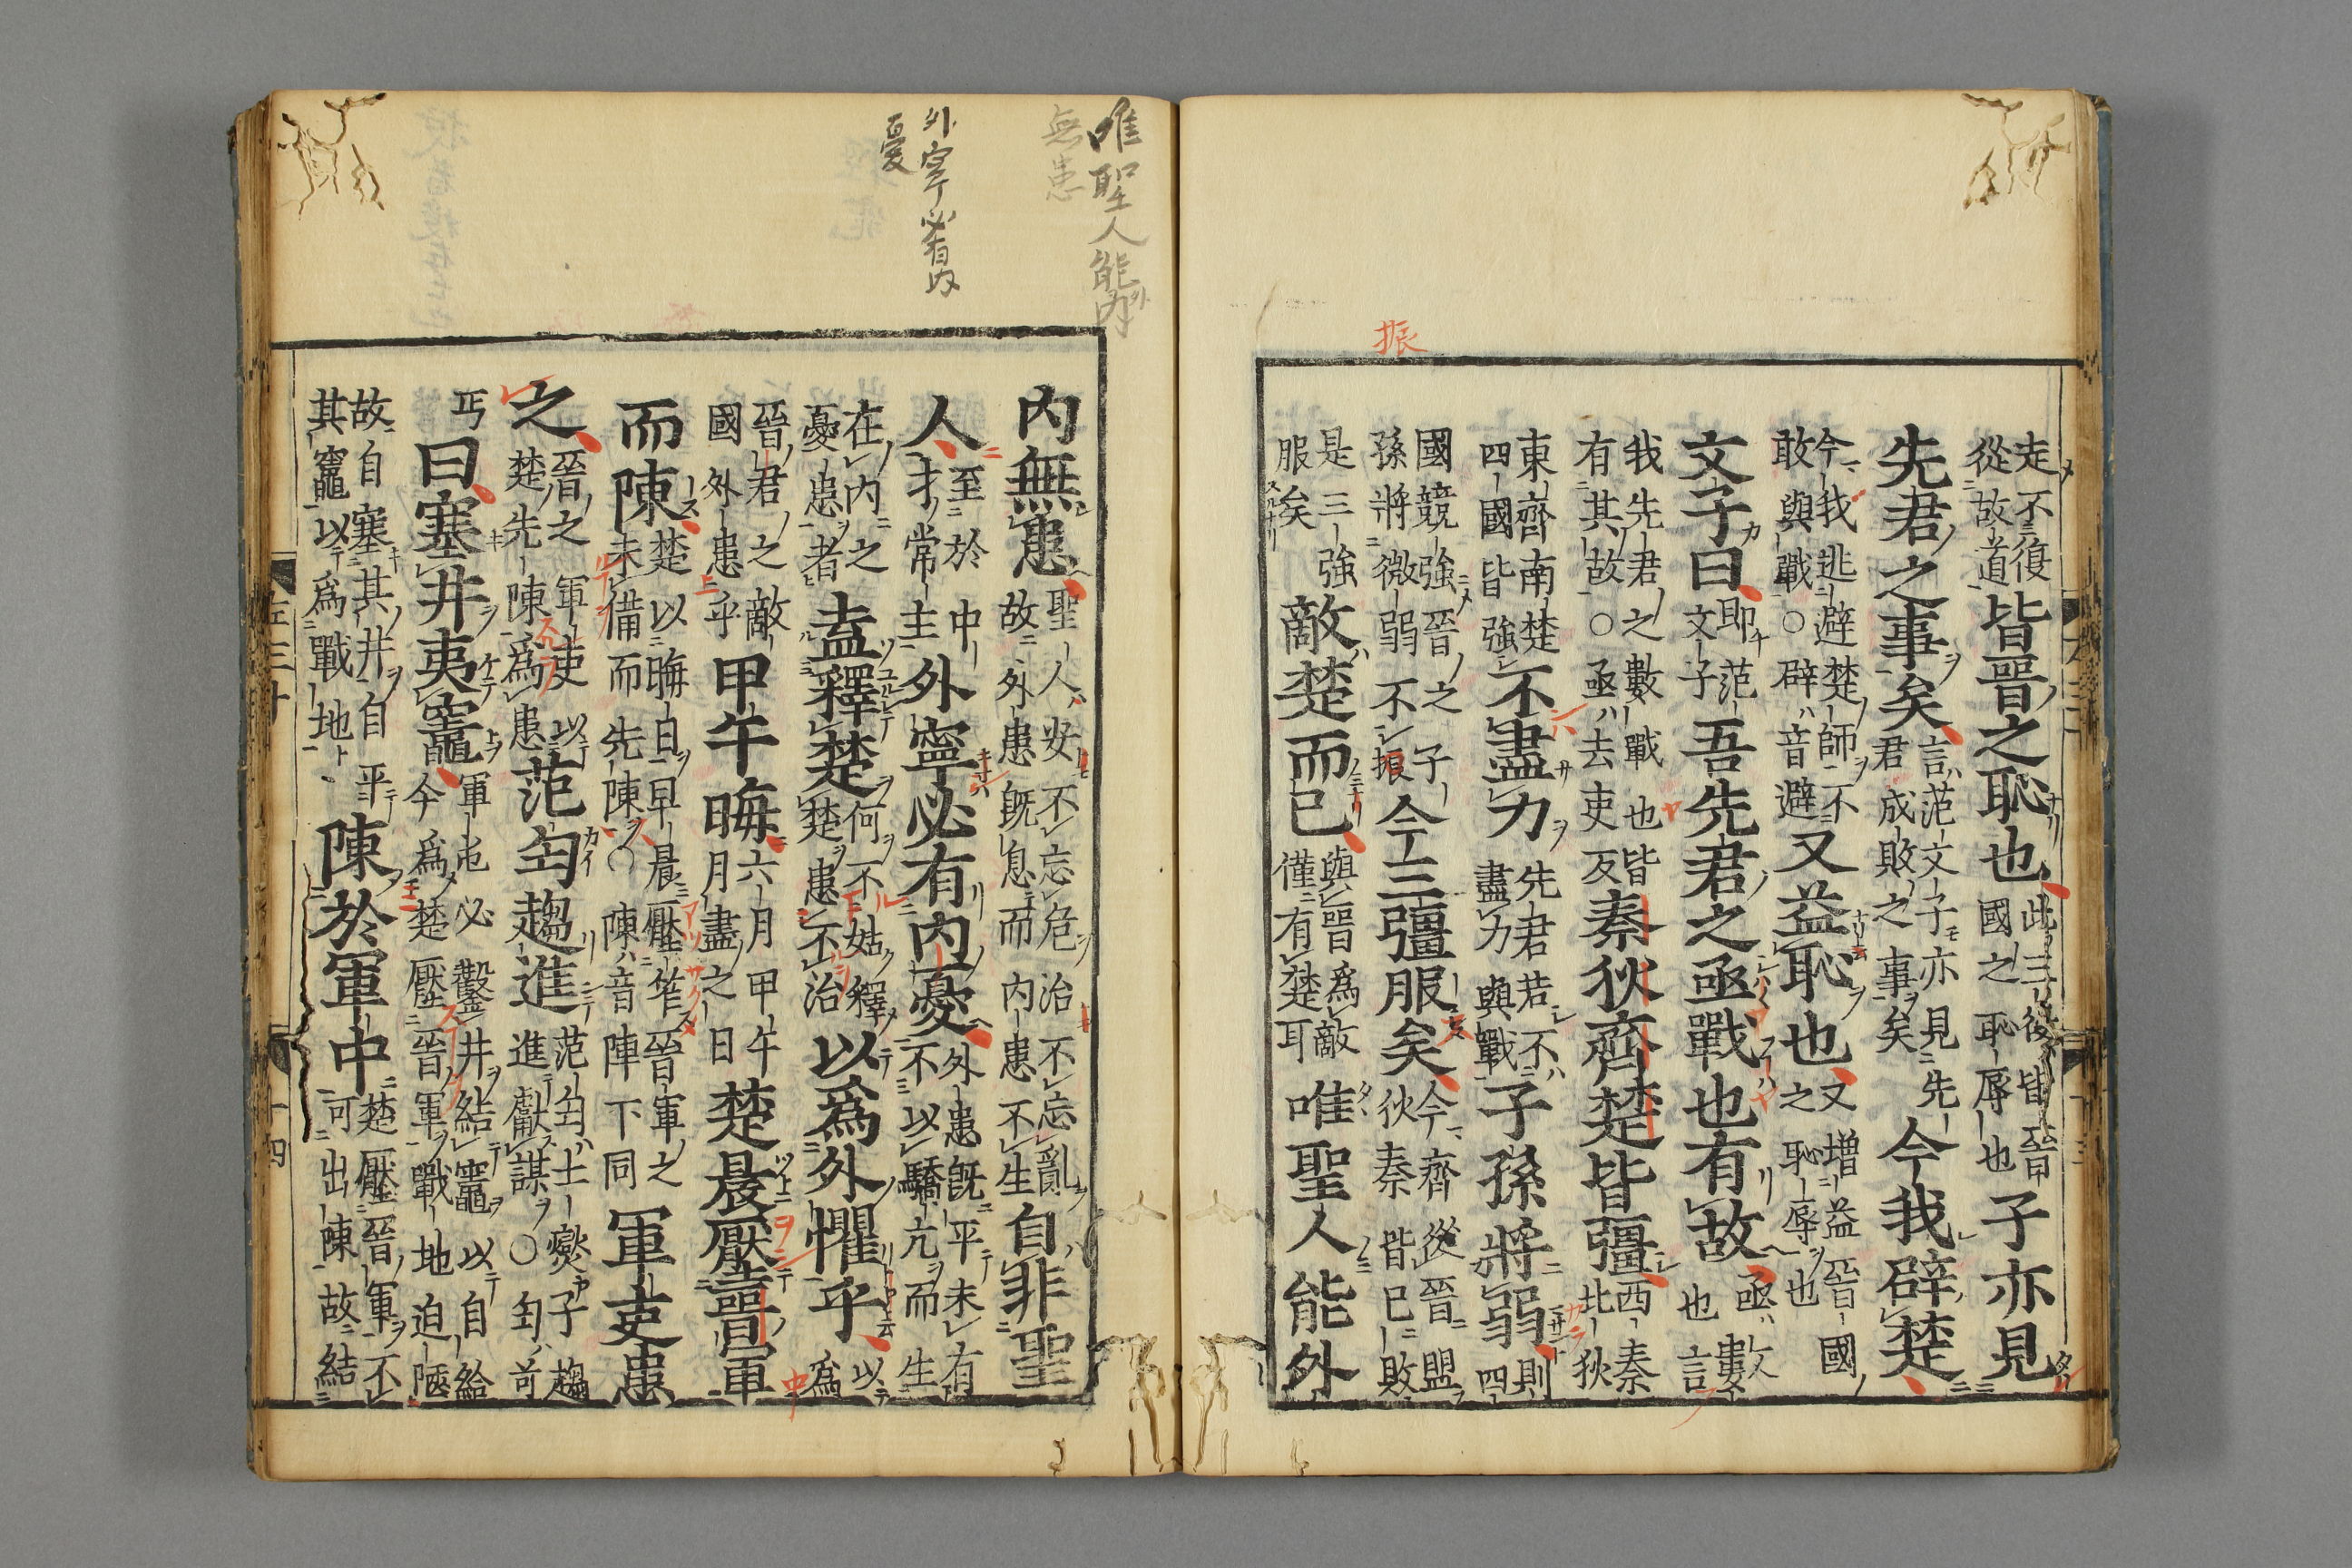 振
走不復
從故道
皆晋之恥也
此三役皆晉
國之恥辱也
子亦見
先君之事矣
言范文子亦見先
君成敗之事矣
今我辟楚
今我逃避楚師不
敢與戰○辟音避
又益恥也
又增益晉國
之恥辱也
文子曰
即范
文子
吾先君之亟戰也有故
亟數
也言
我先君之數戰也皆
有其故○亟去吏反
秦狄齊楚皆彊
西秦
北狄
東齊南楚
四國皆強
不盡力
先君若不
盡力與戰
子孫將弱
則
四
國競強晉之子
孫將微弱不振
今三彊服矣
今齊從晉盟
狄秦皆已敗
是三強
服矣
敵楚而已
與晋為敵
僅有楚耳
唯聖人能外
唯聖人能內外
無患
外寧必有內
憂
內無患
聖人安不忘危治不忘亂
故外患既息而內患不生
自非聖
人
至於中
才常主
外寧必有內憂
外患既平未有
不以驕亢而生
在內之
憂患者
盍釋楚
何不姑釋
楚患不治
以為外懼乎
以
為
晉君之敵
國外患乎
甲午晦
六月甲午
月盡之日
楚晨壓晋軍
而陳
楚以晦日早晨壓笮晉軍之
未備而先陳○陳音陣下同
軍吏患
之
晉之軍吏以
楚先陳為患
范匄趨進
范匄士燮子趨
進獻謀○匄苛
丐
曰塞井夷竈
軍屯必鑿井結竈以自給
今為楚壓晉軍戰地迫陿
故自塞其井自平
其竈以為戰地
陳於軍中
楚壓晉軍不
可出陳故結
左三十
十四